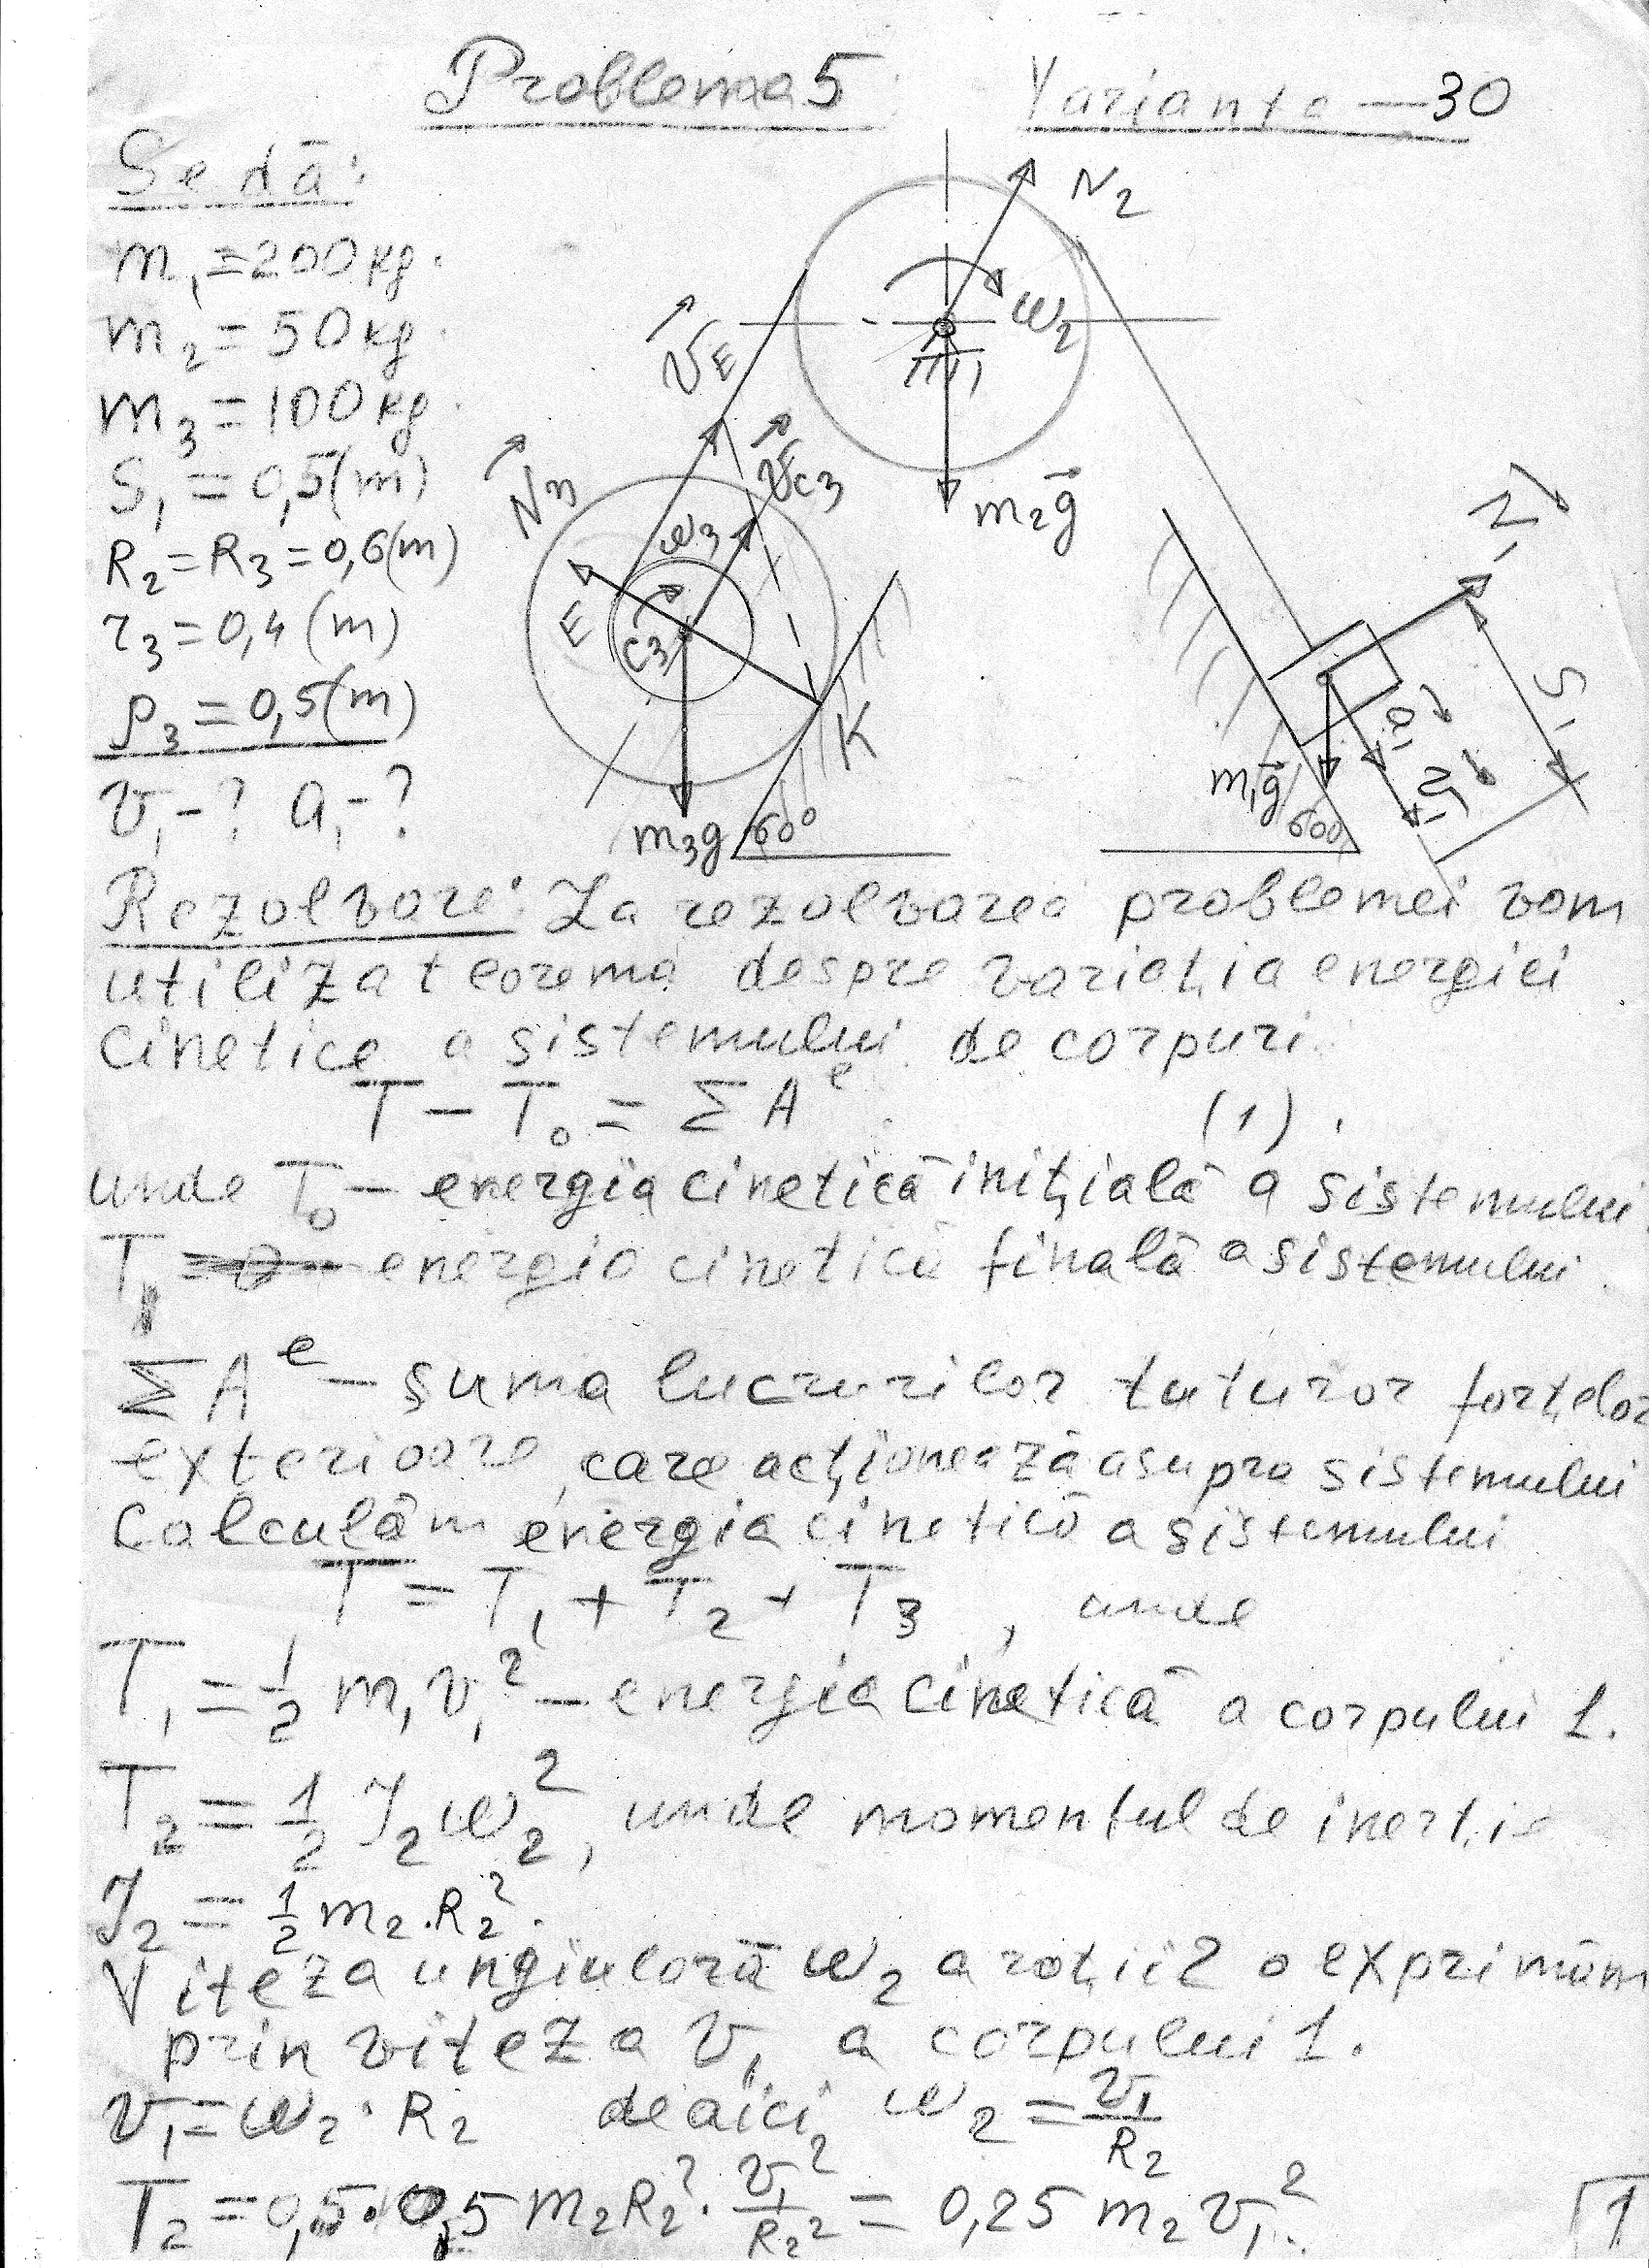 Problema 5 Varianta — 30
Se dă:
m₁ = 200 kg.
m₂ = 50 kg
m₃ = 100 kg.
S₁ = 0,5 (m)
R₂ = R₃ = 0,6 (m)
r₃ = 0,4 (m)
ρ₃ = 0,5 (m)
v₁ - ? a₁ - ?
N₂
ω₂
v⃗E
v⃗C3
m₂g⃗
N⃗₃
ω₃
E
C₃
K
m₃g
60°
N⃗₁
S₁
a⃗₁
v⃗₁
m₁g⃗
60°
Rezolvare: La rezolvarea problemei vom
utiliza teorema despre variația energiei
cinetice a sistemului de corpuri.
T – T₀ = ΣAᵉ (1).
unde T₀ – energia cinetică inițială a sistemului
T – energia cinetică finală a sistemului.
ΣAᵉ – suma lucrurilor tuturor forțelor
exterioare, care acționează asupra sistemului
Calculăm energia cinetică a sistemului
T = T₁ + T₂ + T₃, unde
T₁ = 1/2 m₁v₁² – energia cinetică a corpului 1.
T₂ = 1/2 J₂ω₂², unde momentul de inerție
J₂ = 1/2 m₂·R₂².
Viteza unghiulară ω₂ a roții 2 o exprimăm
prin viteza v₁ a corpului 1.
v₁ = ω₂·R₂ de aici, ω₂ = v₁/R₂
T₂ = 0,5·0,5 m₂R₂²·v₁²/R₂² = 0,25 m₂v₁².
1